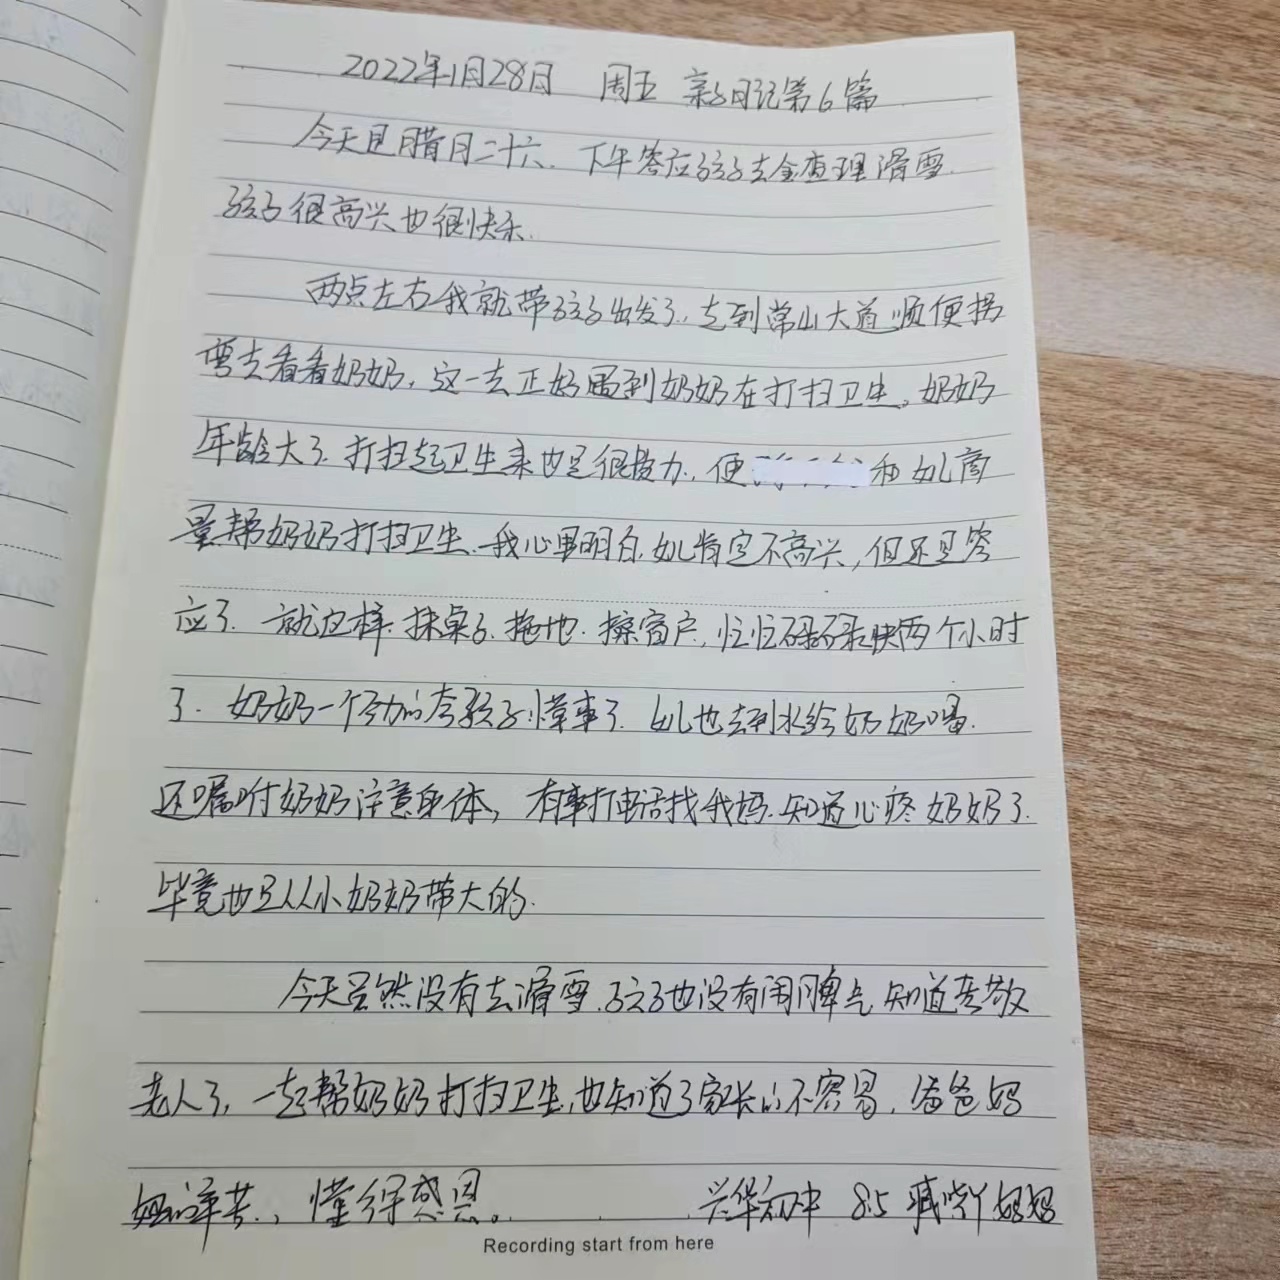 2022年1月28日 周五 亲子日记第6篇
今天是腊月二十六、下午答应孩子去金查理滑雪.
孩子很高兴也很快乐.
两点左右我就带孩子出发了.走到常山大道顺便拐
弯去看看奶奶,这一去正好遇到奶奶在打扫卫生,奶奶
年龄大了.打扫起卫生来也是很费力,便 和女儿商
量帮奶奶打扫卫生.我心里明白,女儿肯定不高兴,但还是答
应了.就这样.抹桌子.拖地.擦窗户,忙忙碌碌快两个小时
了.奶奶一个劲的夸孩子懂事了.女儿也去到水给奶奶喝.
还嘱咐奶奶注意身体,有事打电话找我妈.知道心疼奶奶了.
毕竟也是从小奶奶带大的.
今天虽然没有去滑雪.孩子也没有闹脾气知道孝敬
老人了,一起帮奶奶打扫卫生,也知道了家长的不容易,爸爸妈
妈的辛苦.,懂得感恩。 兴华初中 8.5 臧 妈妈
Recording start from here